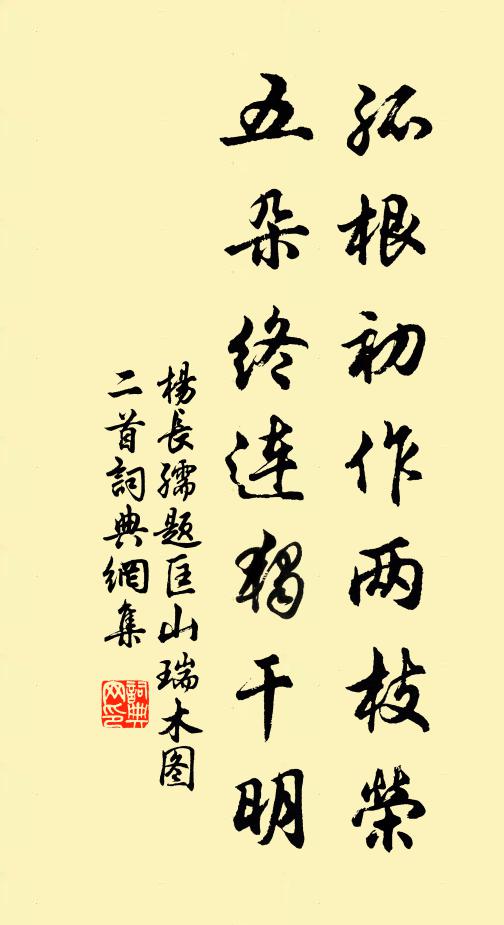 孤根初作两枝榮
五朵終連獨干明
楊長孺題匡山瑞木图
二首詞典網集
詞典網印